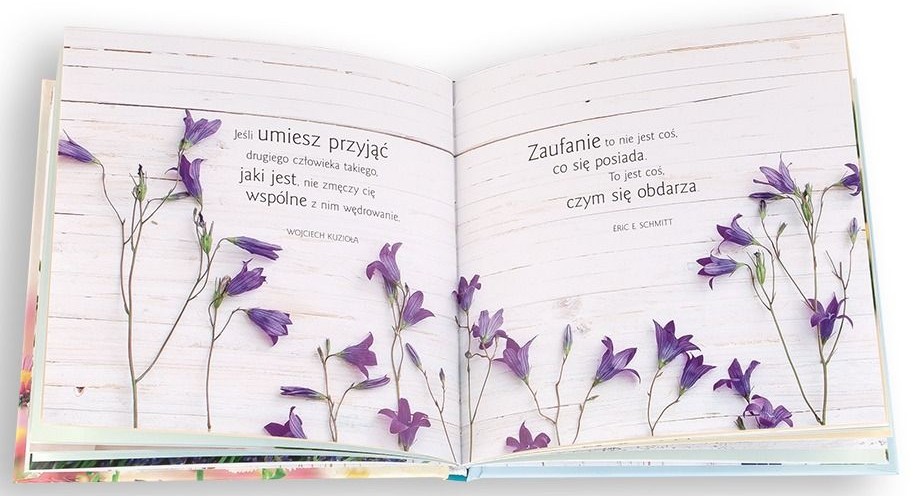 Jeśli umiesz przyjąć
drugiego człowieka takiego,
jaki jest, nie zmęczy cię
wspólne z nim wędrowanie.
WOJCIECH KUZIOŁA
Zaufanie to nie jest coś,
co się posiada.
To jest coś,
czym się obdarza.
ERIC E. SCHMITT